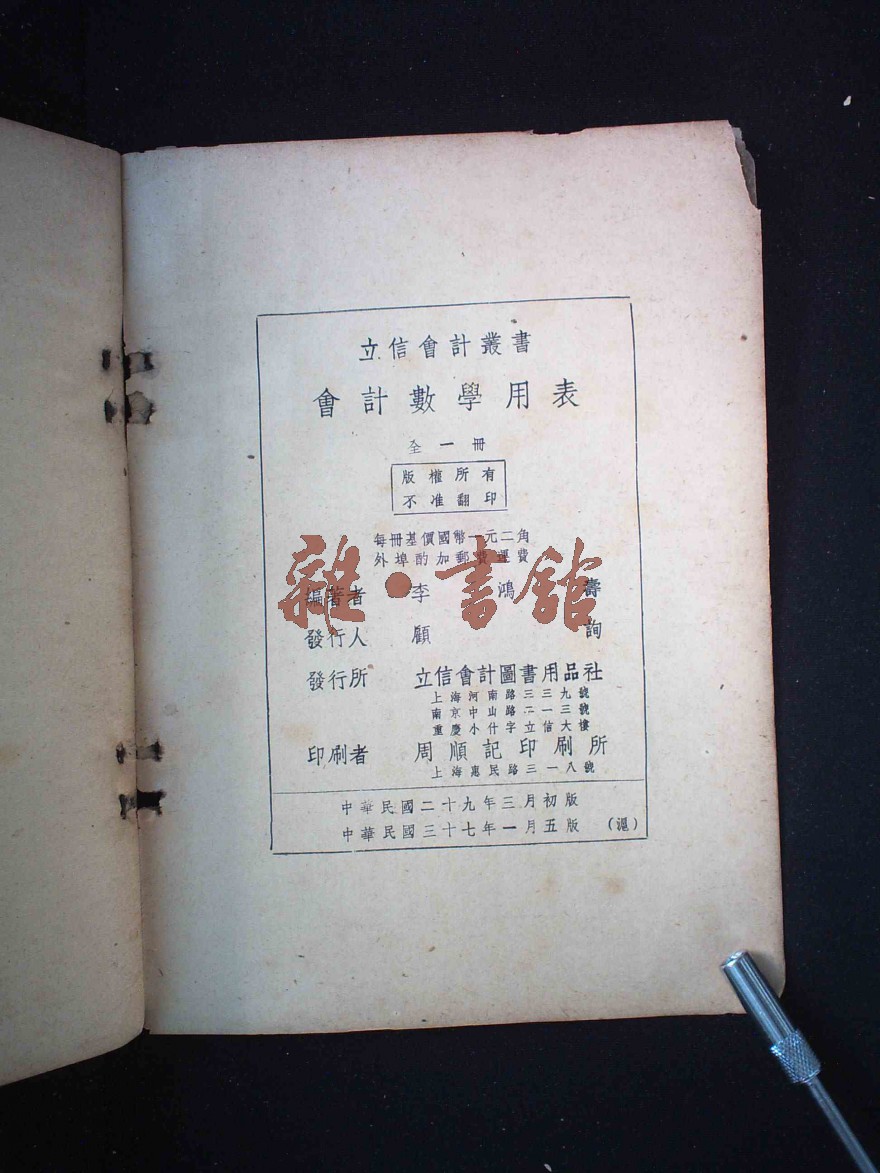 立信會計叢書
會計數學用表
全一冊
版權所有
不准翻印
每冊基價國幣一元二角
外埠酌加郵費運費
雜·書館
編著者 李鴻壽
發行人 顧詢
發行所 立信會計圖書用品社
上海河南路三三九號
南京中山路二一三號
重慶小什字立信大樓
印刷者 周順記印刷所
上海惠民路三一八號
中華民國二十九年三月初版
中華民國三十七年一月五版 (滬)